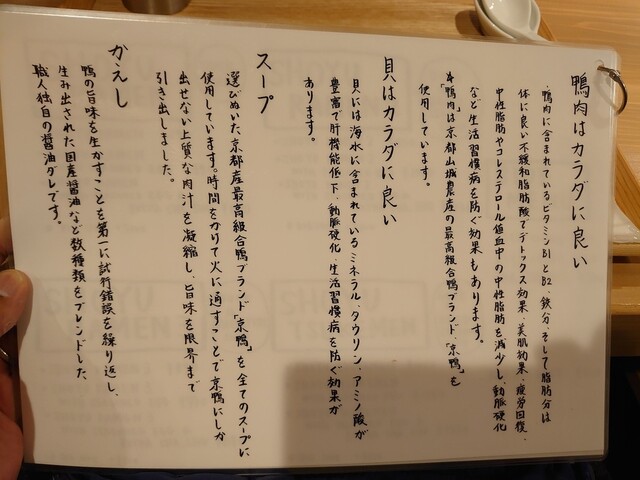 鴨肉はカラダに良い
・鴨肉に含まれているビタミンB1とB2、鉄分、そして脂肪分は
体に良い不飽和脂肪酸でデトックス効果、美肌効果、疲労回復、
中性脂肪やコレステロール値血中の中性脂肪を減少し、動脈硬化
など生活習慣病を防ぐ効果もあります。
※「鴨肉」は京都山城農産の最高級合鴨ブランド、「京鴨」を
使用しています。
貝はカラダに良い
貝には海水に含まれているミネラル、タウリン、アミノ酸が
豊富で肝機能低下、動脈硬化、生活習慣病を防ぐ効果が
あります。
スープ
選びぬいた京都産最高級合鴨ブランド「京鴨」を全てのスープに
使用しています。時間をかけて火に通すことで京鴨にしか
出せない上質な肉汁を凝縮し、旨味を限界まで
引き出しました。
かえし
鴨の旨味を生かすことを第一に試行錯誤を繰り返し、
生み出された国産醤油など数種類をブレンドした、
職人独自の醤油ダレです。